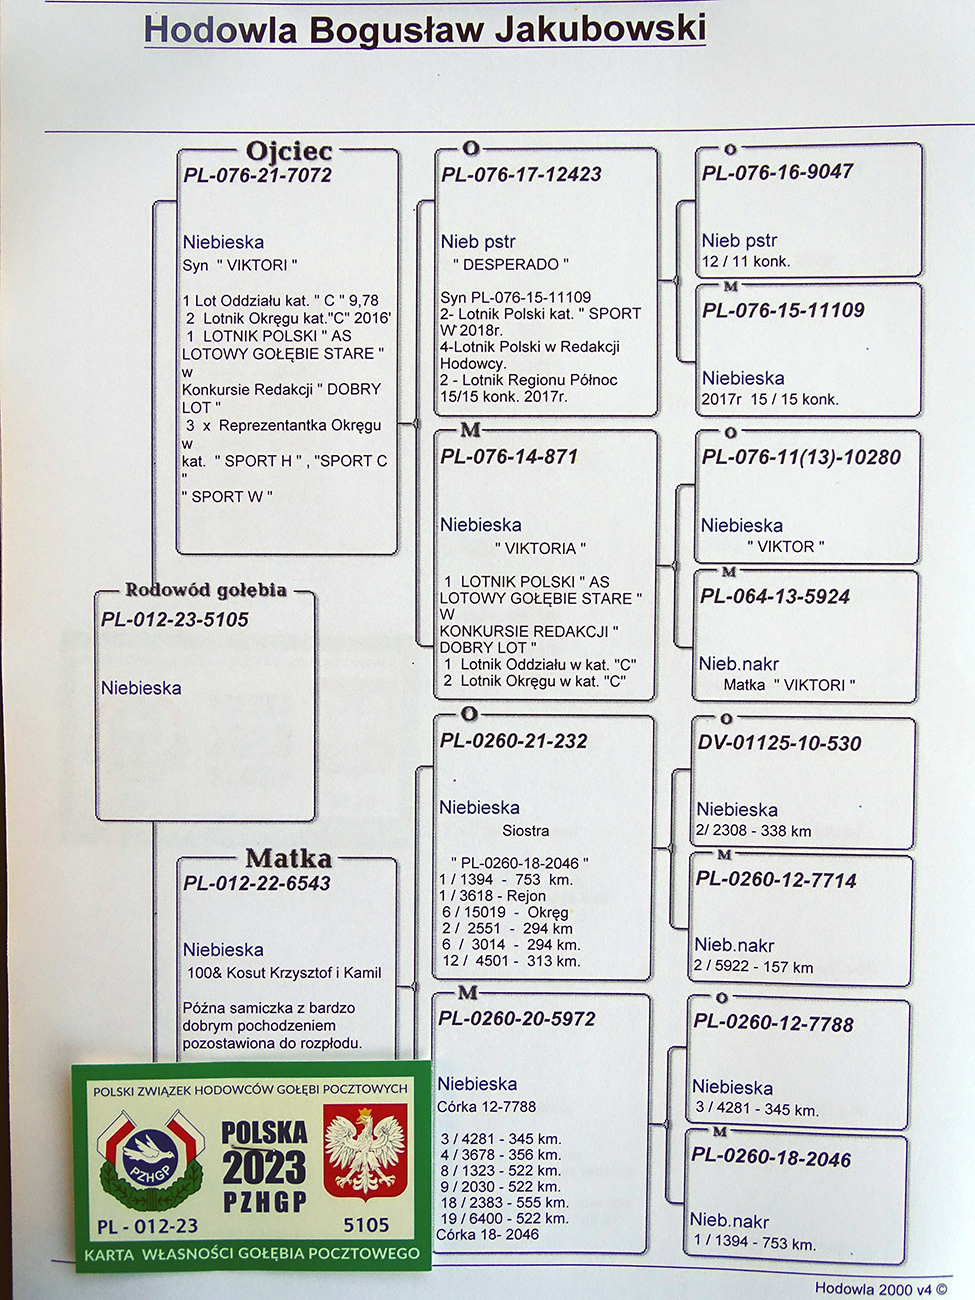 Hodowla Bogusław Jakubowski
Ojciec
PL-076-21-7072
Niebieska
Syn " VIKTORI "
1 Lot Oddziału kat. " C " 9,78
2 Lotnik Okręgu kat."C" 2016'
1 LOTNIK POLSKI " AS
LOTOWY GOŁĘBIE STARE "
w
Konkursie Redakcji " DOBRY
LOT "
3 x Reprezentantka Okręgu
w
kat. " SPORT H " , "SPORT C
"
" SPORT W "
O
PL-076-17-12423
Nieb pstr
" DESPERADO "
Syn PL-076-15-11109
2- Lotnik Polski kat. " SPORT
W 2018r.
4-Lotnik Polski w Redakcji
Hodowcy.
2 - Lotnik Regionu Północ
15/15 konk. 2017r.
O
PL-076-16-9047
Nieb pstr
12 / 11 konk.
M
PL-076-15-11109
Niebieska
2017r 15 / 15 konk.
M
PL-076-14-871
Niebieska
" VIKTORIA "
1 LOTNIK POLSKI " AS
LOTOWY GOŁĘBIE STARE "
W
KONKURSIE REDAKCJI "
DOBRY LOT "
1 Lotnik Oddziału w kat. "C"
2 Lotnik Okręgu w kat. "C"
O
PL-076-11(13)-10280
Niebieska
" VIKTOR "
M
PL-064-13-5924
Nieb.nakr
Matka " VIKTORI "
Rodowód gołębia
PL-012-23-5105
Niebieska
Matka
PL-012-22-6543
Niebieska
100& Kosut Krzysztof i Kamil
Późna samiczka z bardzo
dobrym pochodzeniem
pozostawiona do rozpłodu.
O
PL-0260-21-232
Niebieska
Siostra
" PL-0260-18-2046 "
1 / 1394 - 753 km.
1 / 3618 - Rejon
6 / 15019 - Okręg
2 / 2551 - 294 km
6 / 3014 - 294 km.
12 / 4501 - 313 km.
O
DV-01125-10-530
Niebieska
2/ 2308 - 338 km
M
PL-0260-12-7714
Nieb.nakr
2 / 5922 - 157 km
M
PL-0260-20-5972
Niebieska
Córka 12-7788
3 / 4281 - 345 km.
4 / 3678 - 356 km.
8 / 1323 - 522 km.
9 / 2030 - 522 km.
18 / 2383 - 555 km.
19 / 6400 - 522 km.
Córka 18- 2046
O
PL-0260-12-7788
Niebieska
3 / 4281 - 345 km.
M
PL-0260-18-2046
Nieb.nakr
1 / 1394 - 753 km.
POLSKI ZWIĄZEK HODOWCÓW GOŁĘBI POCZTOWYCH
PZHGP
POLSKA
2023
PZHGP
PL - 012-23
5105
KARTA WŁASNOŚCI GOŁĘBIA POCZTOWEGO
Hodowla 2000 v4 ©